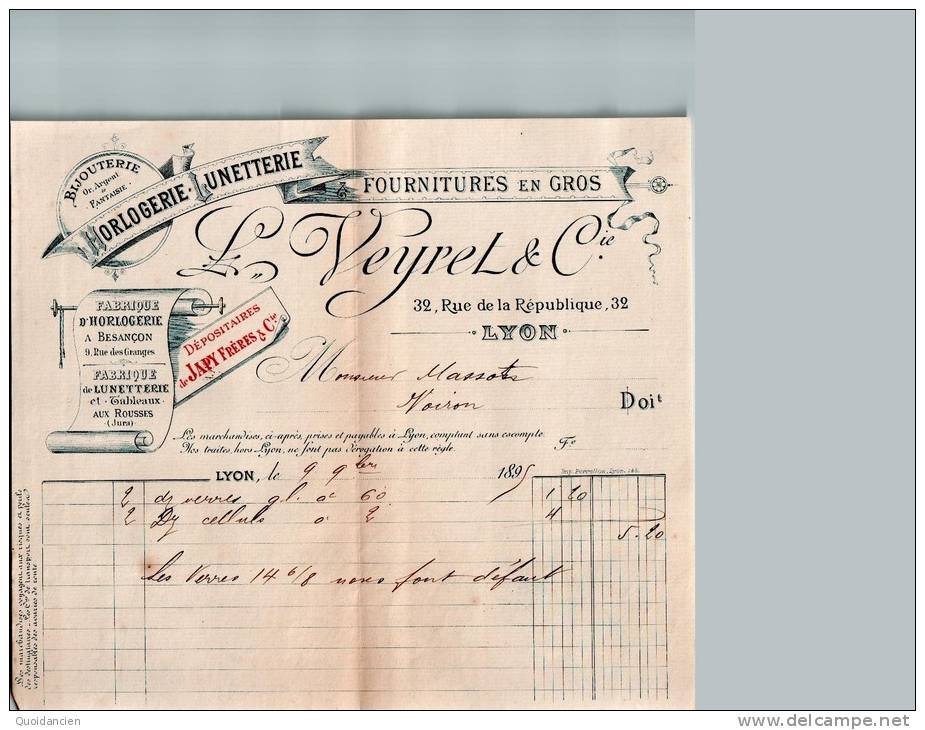 BIJOUTERIE
Or, Argent
&
FANTAISIE
HORLOGERIE - LUNETTERIE
FOURNITURES EN GROS
L. Veyret & Cie
32, Rue de la République, 32
LYON
FABRIQUE
D'HORLOGERIE
A BESANÇON
9, Rue des Granges
FABRIQUE
de LUNETTERIE
et Tableaux
AUX ROUSSES
(Jura)
DÉPOSITAIRES
de JAPY FRÈRES & Cie
Monsieur Massot
Voiron
Doit
Les marchandises, ci-après, prises et payables à Lyon, comptant sans escompte.
Nos traites, hors Lyon, ne font pas dérogation à cette règle.
Fo
Imp. Perrellon, Lyon.
LYON, le 9 9bre 1895
2 dz verres gl. à 60 1 20
2 Dz cellulo à 2 4
5.20
Les Verres 14 6/8 nous font défaut
Les marchandises voyagent aux risques et périls
des destinataires. Les Cies de transport sont seules
responsables des avaries de route
Quoidancien
www.delcampe.net